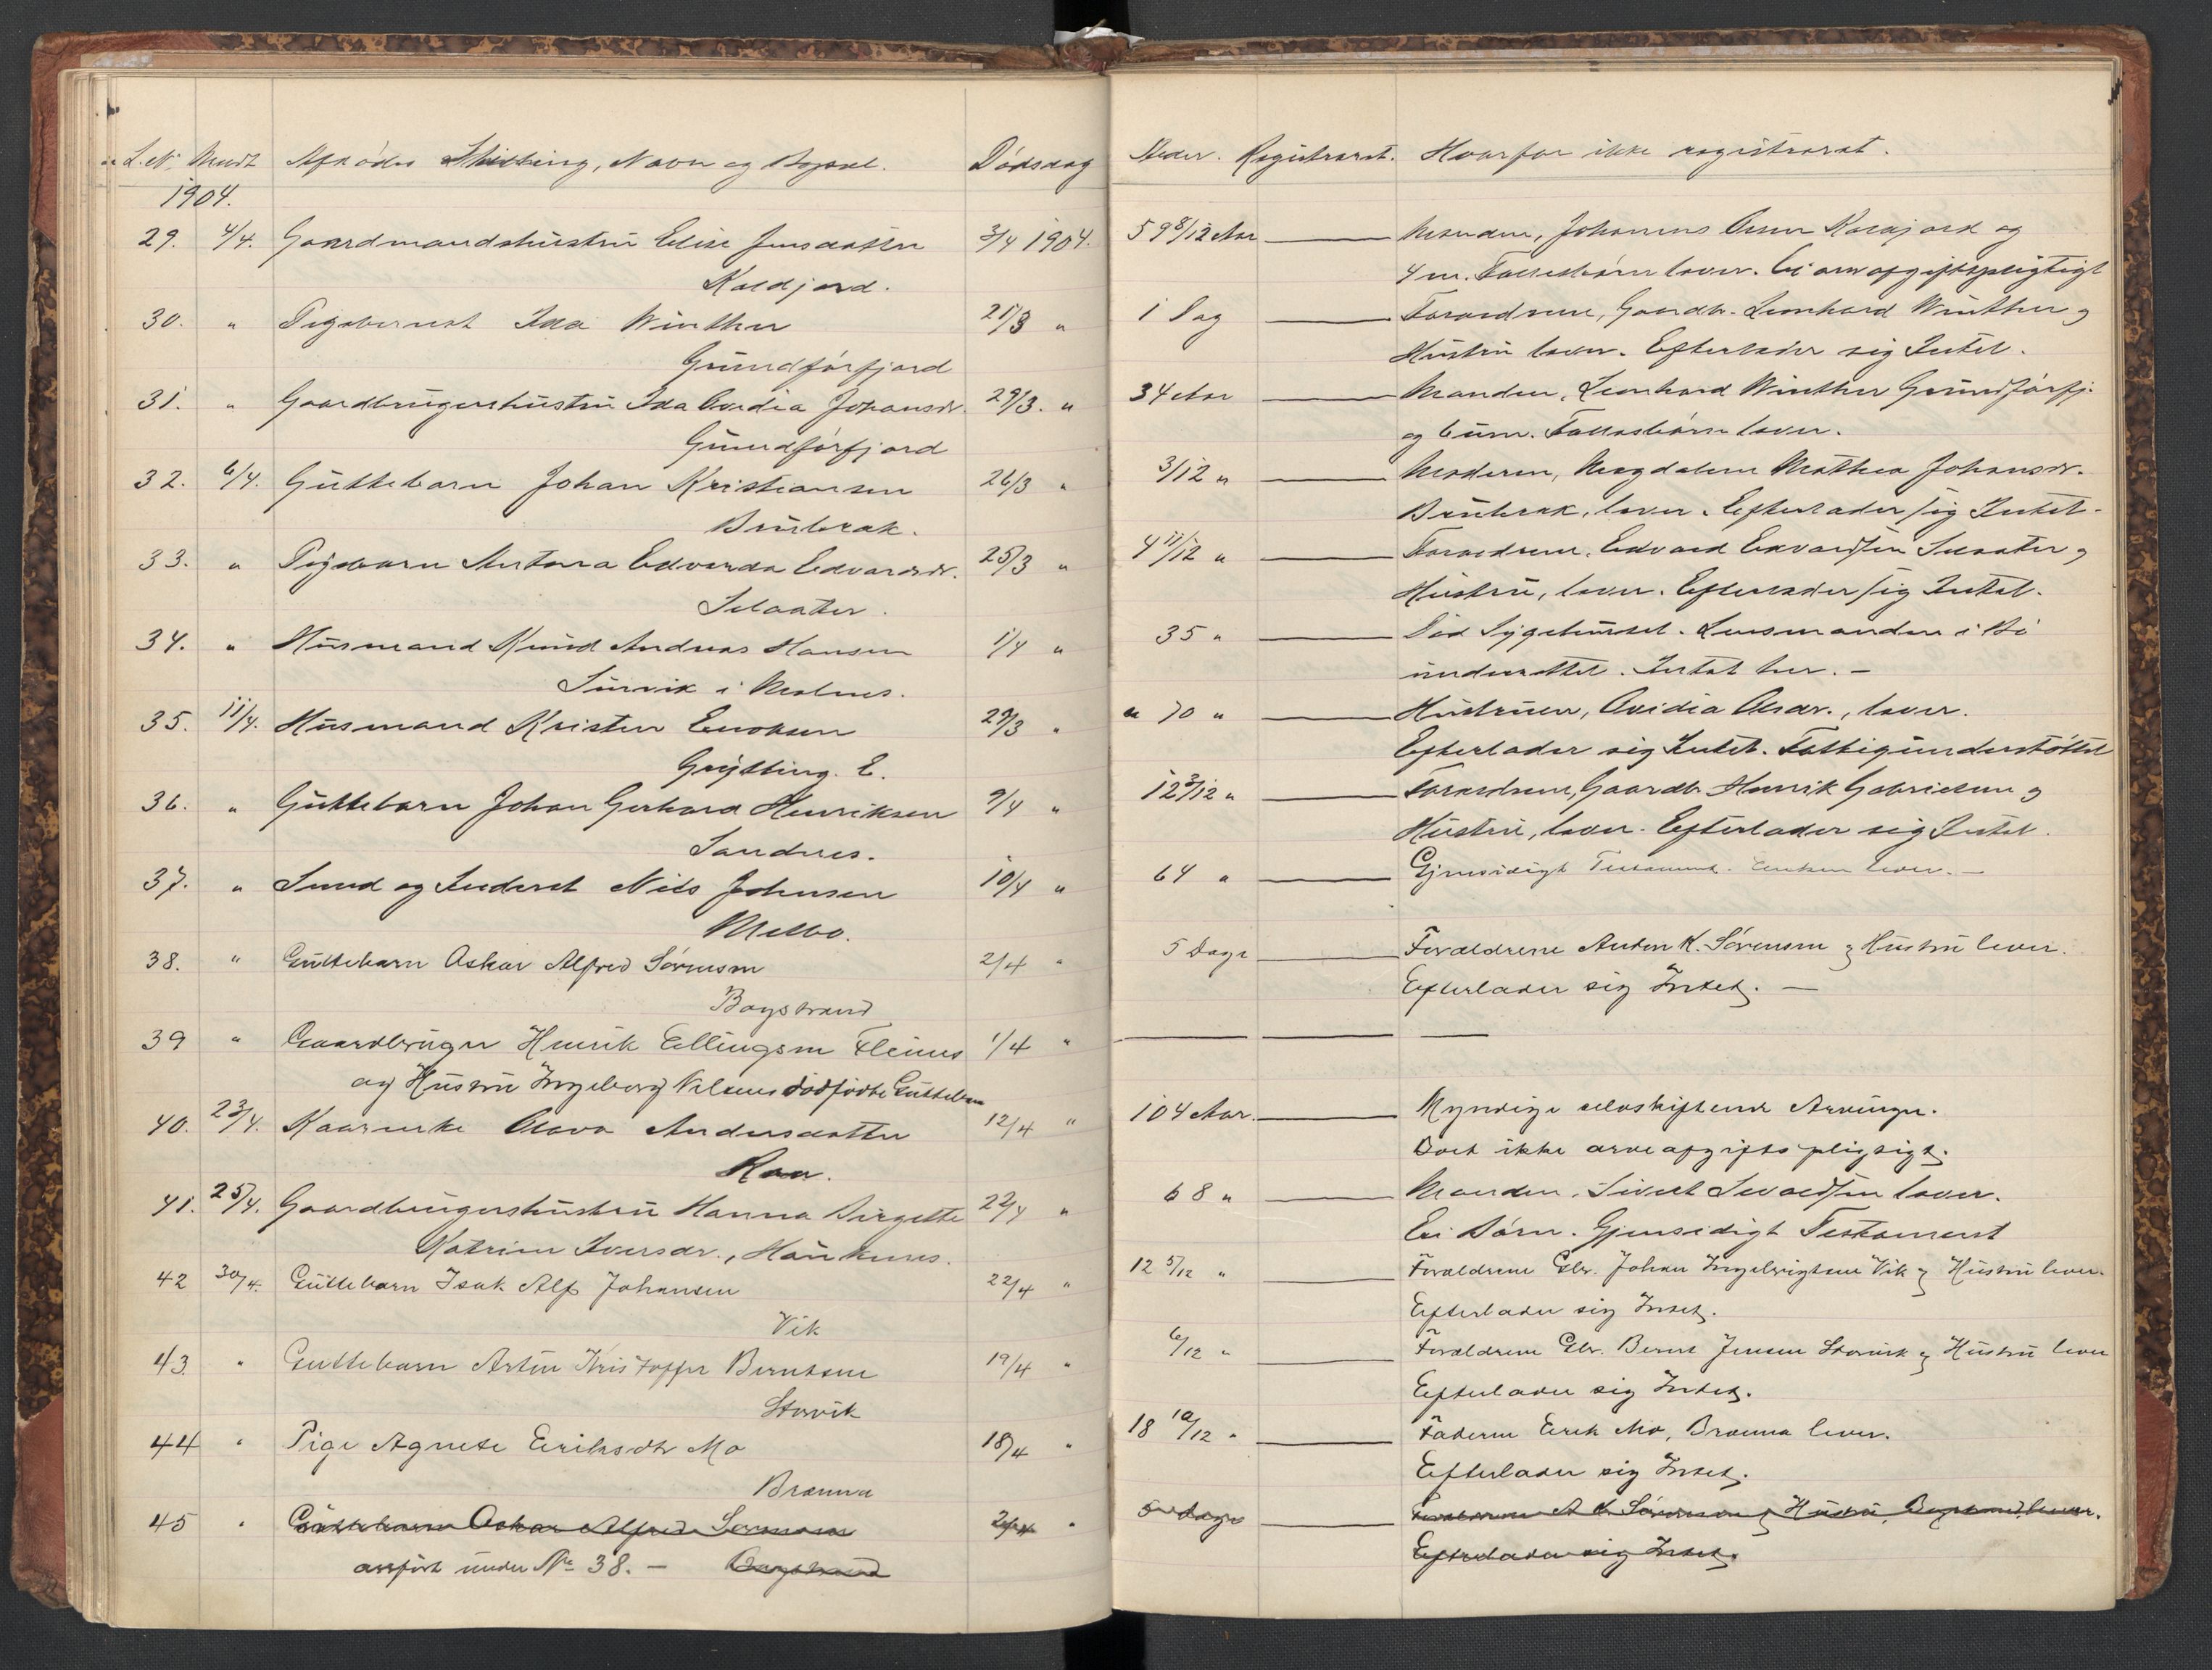 L.N. Meldt Afdødes Stilling, Navn og Bopæl. Dødsdag Alder. Registreret. Hvorfor ikke registreret.
1904.
29. 4/4. Gaardmandshustru Elise Jensdatter 3/4 1904. 59 8/12 Aar Manden, Johannes Olsen Kaldjord og
Kaldjord. 4 m. Fællesbørn lever. Ei arveafgiftspligtigt
30. " Pigebarnet Ida Winther 21/3 " 1 Dag Forældrene, Gaardb. Leonhard Winther og
Grundførfjord Hustru lever. Efterlader sig Intet.
31. " Gaardbrugerhustru Ida Ovidia Johansdr. 29/3. " 34 Aar Manden, Leonhard Winther Grundførfj.
Grundførfjord og 6 um. Fællesbørn lever.
32. 6/4. Guttebarn Johan Kristiansen 26/3 " 3/12 " Moderen, Magdalene Mathea Johansdr.
Brubræk. Brubræk, lever. Efterlader sig Intet.
33. " Pigebarn Antona Edvarda Edvardsdr. 25/3 " 4 11/12 " Forældrene, Edvard Edvardsen Slaater og
Slaater. Hustru, lever. Efterlader sig Intet.
34. " Husmand Knud Andreas Hansen 1/4 " 35 " Død Sygehuset. Lensmanden i Bø
i Malnes. underrettet. Intet her. —
35. 11/4. Husmand Kristen Enoksen 29/3 " 70 " Hustruen, Ovidia Olsdr., lever.
Grytting. E. Efterlader sig Intet. Fattigunderstøttet
36. " Guttebarn Johan Gerhard Henriksen 9/4 " 12 3/12 " Forældrene, Gaardb. Henrik Gabrielsen og
Sandnes. Hustru, lever. Efterlader sig Intet.
37. " Smed og Inderst Nils Johnsen 10/4 " 64 " Gjensidigt Testament. Enken lever. —
Melbo.
38. " Guttebarn Oskar Alfred Sørensen 2/4 " 5 Dage Forældrene Anton K. Sørensen og Hustru lever.
Bøgstrand Efterlader sig Intet. —
39 " Gaardbruger Henrik Ellingsen Fleines 1/4 "
og Hustru Ingeborg Nilsens dødfødte Guttebarn
40. 23/4. Kaarenke Olava Andersdatter 12/4 " 104 Aar. Myndige selvskiftende Arvinger.
Raa. Boet ikke arveafgiftspligtigt.
41. 25/4. Gaardbrugershustru Hanna Birgette 22/4 " 68 " Manden, Sivert Sivertsen lever.
Katrine Iversdr., Haukenes. Ei Børn. Gjensidigt Testament
42 30/4. Guttebarn Isak Alf Johansen 22/4 " 12 5/12 " Forældrene Gbr. Johan Ingebrigtsen Vik og Hustru lever.
Vik Efterlader sig Intet.
43. " Guttebarn Artur Kristoffer Berntsen 19/4 " 6/12 " Forældrene Gbr. Bernt Jensen Storvik og Hustru lever
Storvik Efterlader sig Intet.
44 " Pige Agnete Eriksdtr Mo 18/4 " 18 10/12 " Faderen Erik Mo, Brænna lever.
Brænna Efterlader sig Intet.
45 " Guttebarn Oskar Alfred Sørensen 2/4 " 5 dage Forældrene A K Sørensen og Hustru, Bøgstrand lever.
anført under No 38. — Bøgstrand Efterlader sig Intet.